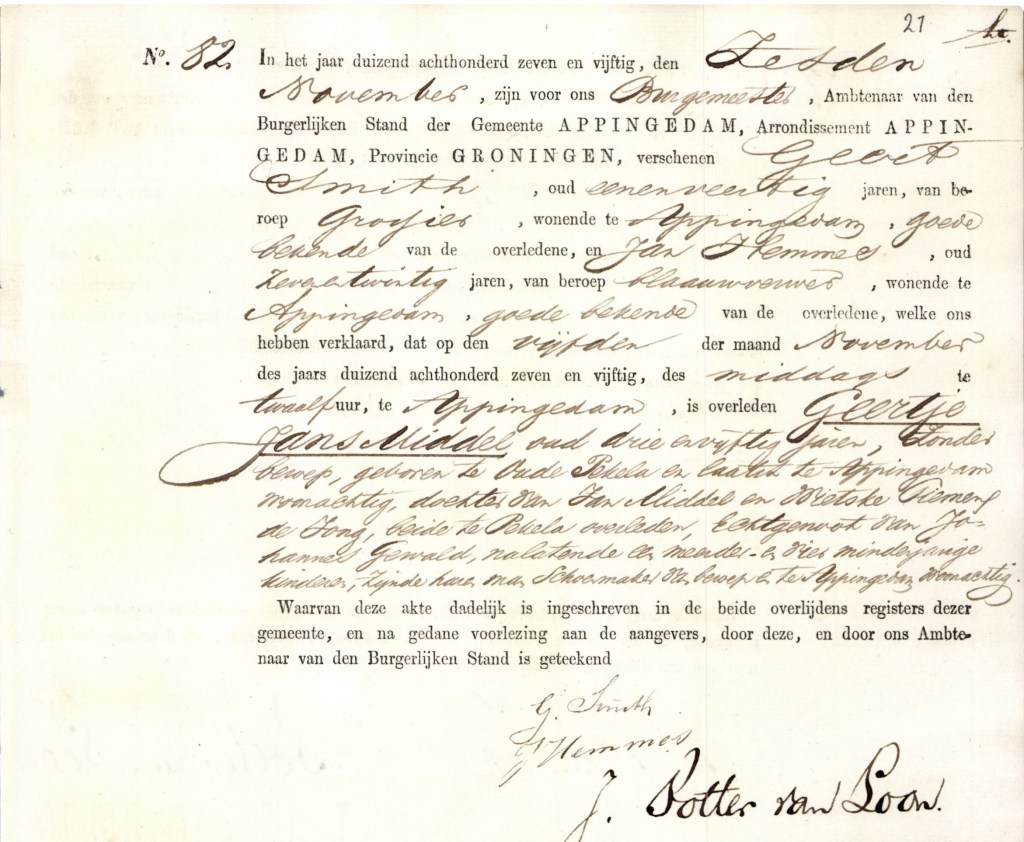 21
No. 82.
In het jaar duizend achthonderd zeven en vijftig, den Zesden
November, zijn voor ons Burgemeester, Ambtenaar van den
Burgerlijken Stand der Gemeente APPINGEDAM, Arrondissement APPIN-
GEDAM, Provincie GRONINGEN, verschenen Geert
Smith, oud eenenveertig jaren, van be-
roep Grossier, wonende te Appingedam, goede
bekende van de overledene, en Jan Hemmes, oud
Zevenentwintig jaren, van beroep blaauwverwer, wonende te
Appingedam, goede bekende van de overledene, welke ons
hebben verklaard, dat op den vijfden der maand November
des jaars duizend achthonderd zeven en vijftig, des middags te
twaalf uur, te Appingedam, is overleden Geertje
Jans Middel oud drie envyftig jaren, Zonder
beroep, geboren te Oude Pekela en laatst te Appingedam
woonachtig, dochter van Jan Middel en Wietske Tiemens
de Jong, beide te Pekela overleden, Echtgenoot van Jo-
hannes Gewald, nalatende een meerder- en vier minderjarige
kinderen, zijnde haar man Schoenmaker van beroep en te Appingedam woonachtig.
Waarvan deze akte dadelijk is ingeschreven in de beide overlijdens registers dezer
gemeente, en na gedane voorlezing aan de aangevers, door deze, en door ons Ambte-
naar van den Burgerlijken Stand is geteekend
G. Smith
J Hemmes
J. Potter van Loon.